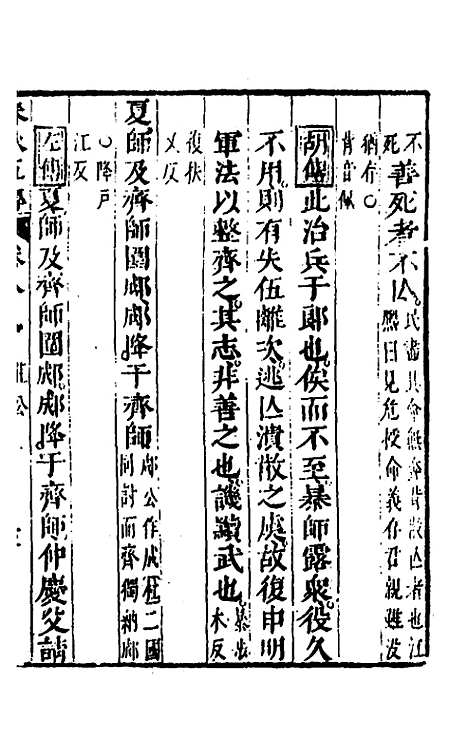 不善死者不亡民盡其命無奔背散亡者也江
死熙曰見危授命義存君親雖沒
猶存○
背音佩
胡傳此治兵于郎也俟而不至暴師露眾役久
不用則有失伍離次逃亡潰散之虞故復申明
軍法以整齊之其志非善之也譏黷武也暴步
木反
復扶
又反
夏師及齊師圍郕郕降于齊師郕公作成杜二國
同討而齊獨納郕
○降戶
江反
左傳夏師及齊師圍郕郕降于齊師仲慶父請